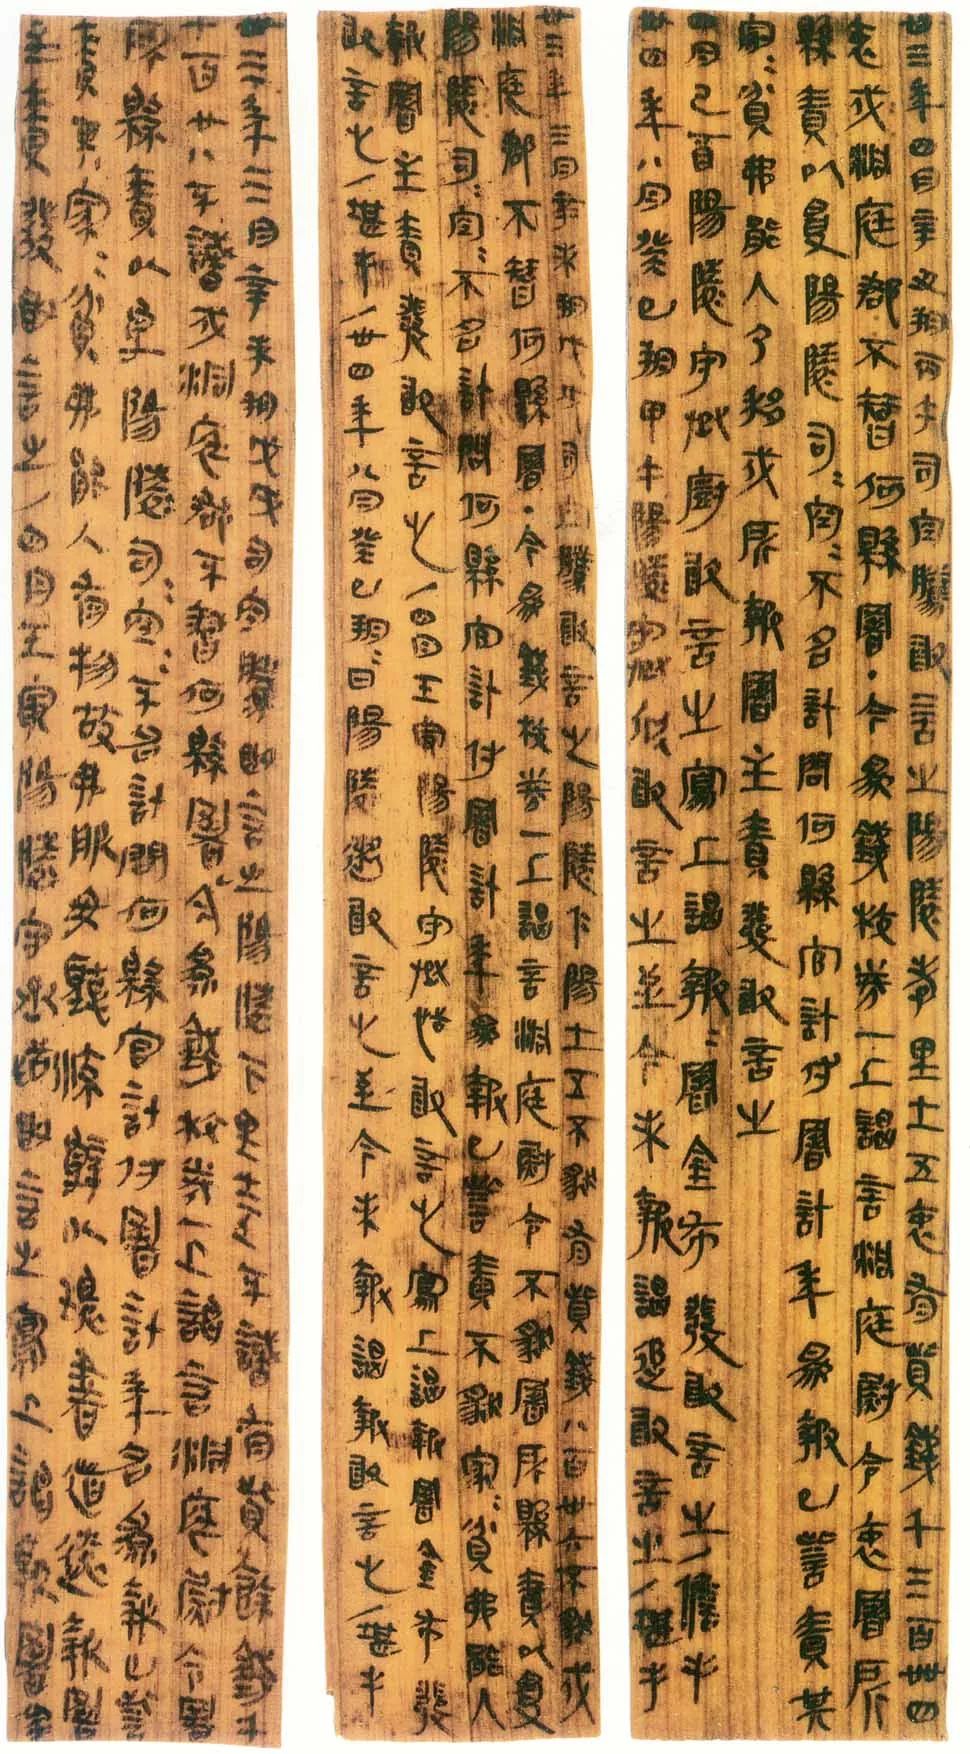 卅三年四月辛丑朔丙午司空騰敢言之陽陵孝里士五衷有貲錢千三百卌四
衷戍洞庭郡不智何縣署·今為錢校券一上謁言洞庭尉令衷署所
縣責以受陽陵司=空=不名計問何縣官計付署計年為報已訾責其
家=貧弗能入乃移戍所報署主責發敢言之
四月己酉陽陵守丞廚敢言之寫上謁報=署金布發敢言之/儋手
卅四年八月癸巳朔甲午陽陵守丞欣敢言之至今未報謁追敢言之/堪手
卅三年三月辛未朔戊戌司空騰敢言之陽陵仁陽士五不豤有貲錢八百卅六不豤戍
洞庭郡不智何縣署·今為錢校券一上謁言洞庭尉令不豤署所縣責以受
陽陵司=空=不名計問何縣官計付署計年為報已訾責不豤家=貧弗能入
報署主責發敢言之/四月壬寅陽陵守丞恬敢言之寫上謁報署金布發
敢言之/堪手/卅四年八月癸巳朔=日陽陵遫敢言之至今未報謁報敢言之/堪手
卅三年三月辛未朔戊戌司空騰敢言之陽陵下里士五不識有貲餘錢千
七百廿八不識戍洞庭郡不智何縣署今為錢校券一上謁言洞庭尉令署
所縣責以受陽陵司=空=不名計問何縣官計付署計年名為報已訾
責其家=貧弗能入有物故弗服毋聽流辭以環書道遠報署
主責發敢言之/四月壬寅陽陵守丞恬敢言之寫上謁報署金